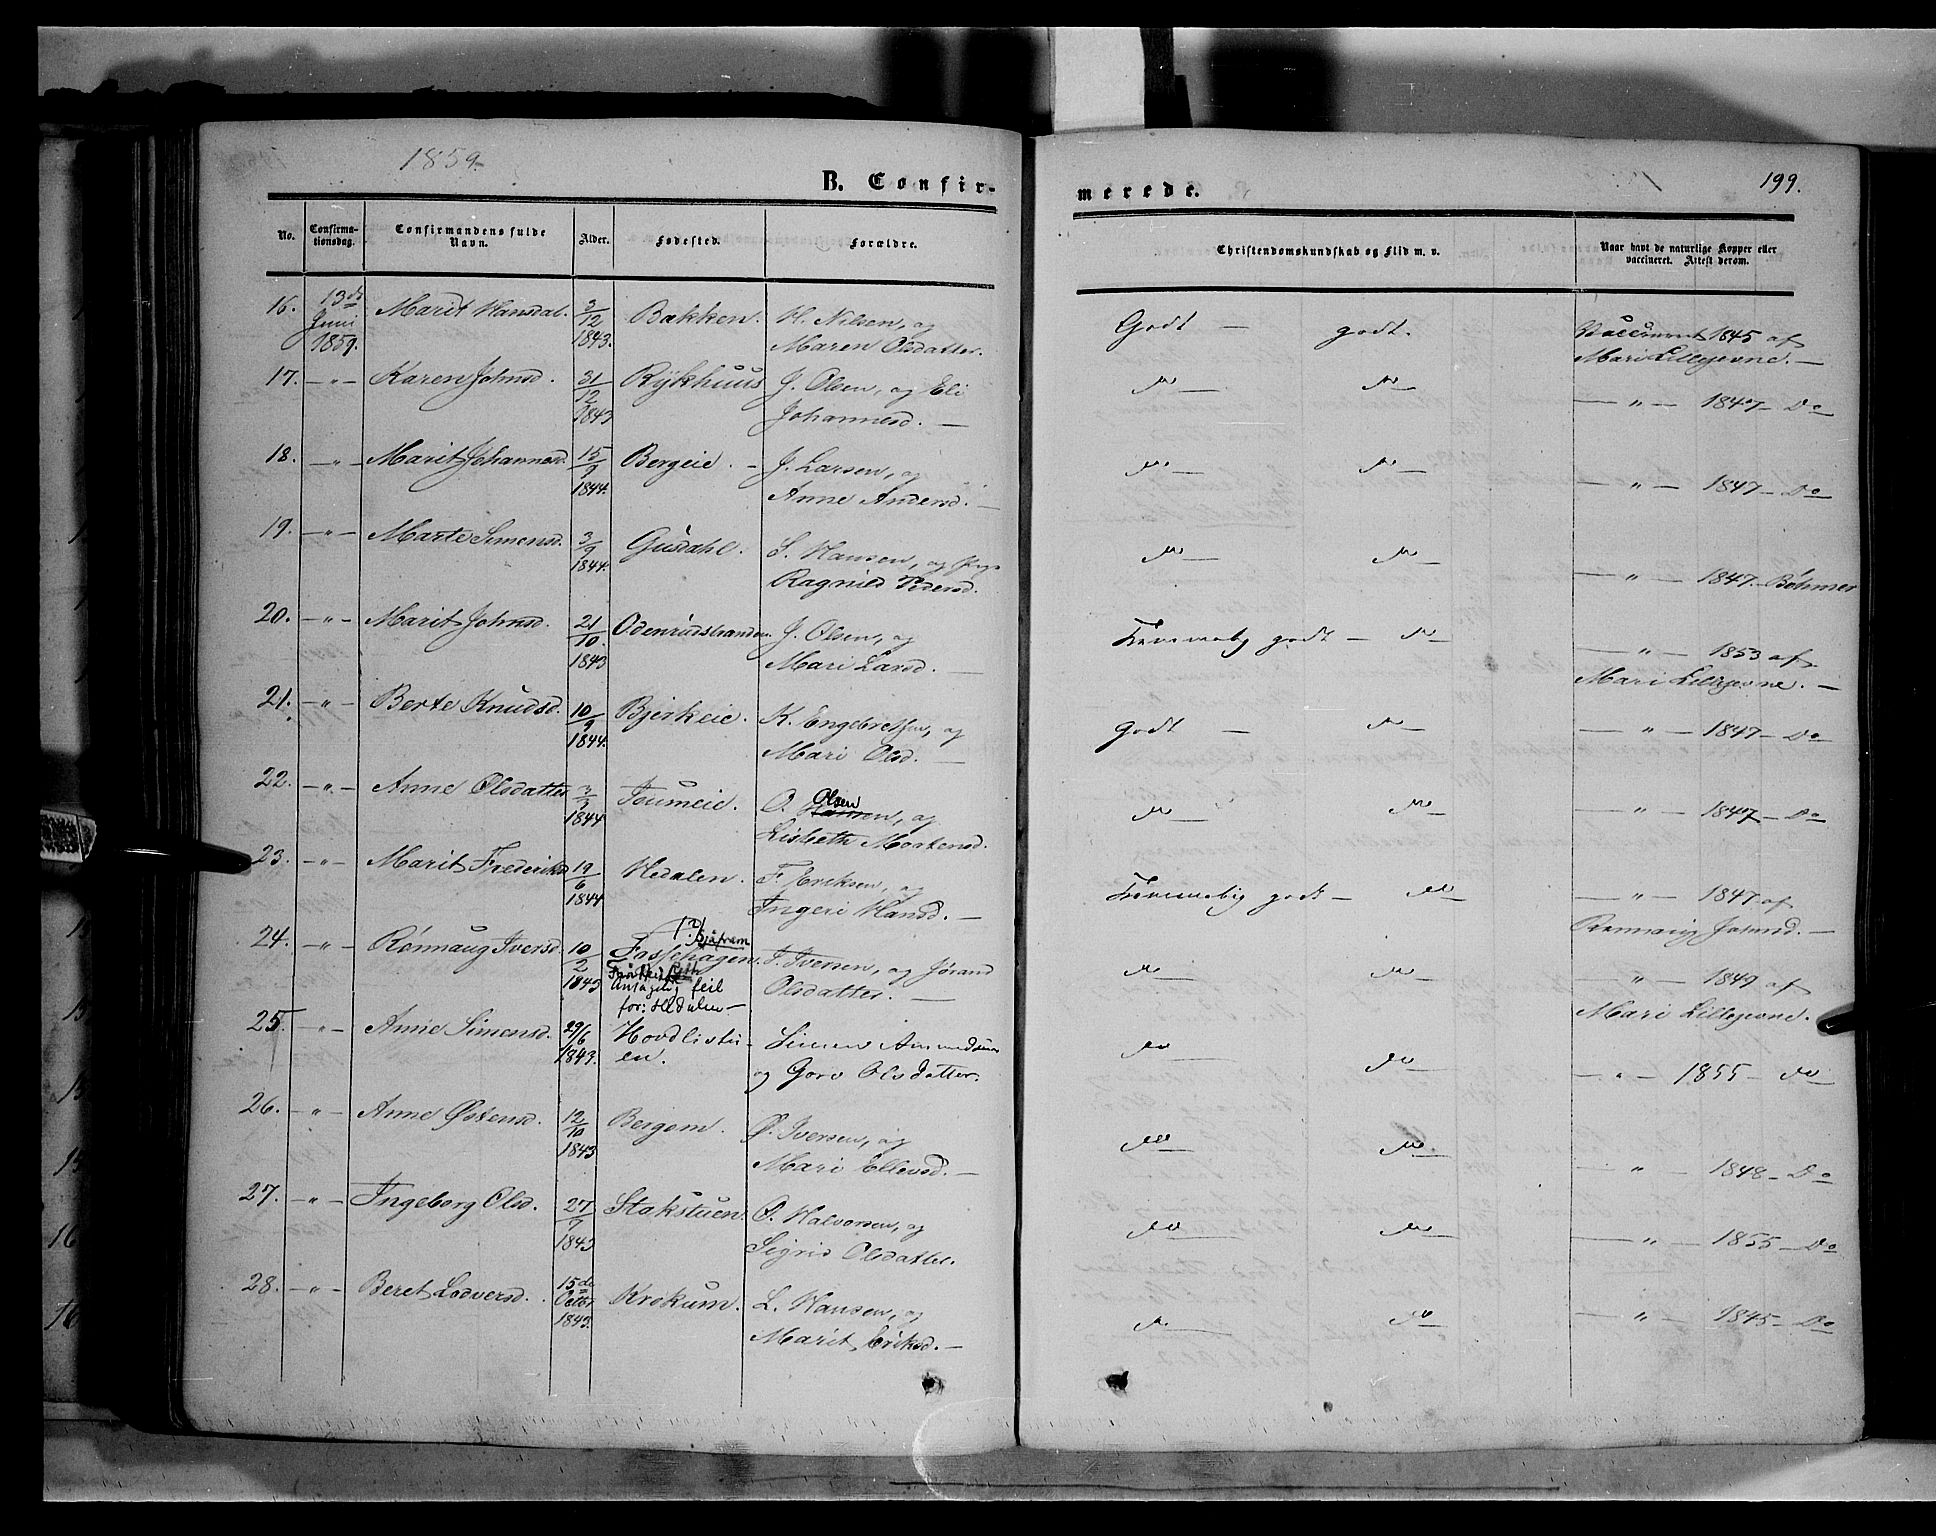 1859
B. Confir-
merede.
199.
No.
Confirma-
tionsdag.
Confirmandens fulde
Navn.
Alder.
Fødested.
Forældre.
Christendomskundskab og Flid m. v.
Naar havt de naturlige Kopper eller
vaccineret. Attest derom.
16. 13de Juni 1859. Marit Hansdat. 3/12 1843. Bakken. H. Nilsen, og Maren Olsdatter. Godt — godt. Vaccineret 1845 af Mari Lillejevne. —
17. —"— Karen Johnsd. 31/12 1843 Rykhuus J. Olsen, og Eli Johannesd. — —"— 1847 — Do
18. —"— Marit Johannesd. 15/9 1844. Bergeie. — J. Larsen, og Anne Andersd. — —"— 1847 — Do
19. —"— Marte Simensd. 3/9 1844. Gusdahl. S. Hansen, og Ragnild Pedersd. —"— 1847. Böhmer
20. —"— Marit Johnsd. 21/10 1843 Odenrudstranden. J. Olsen, og Mari Larsd. — godt — —"— 1853 af Mari Lillejevne. —
21. —"— Berte Knudsd. 10/9 1844. Bjerkeie. K. Engebretsen, og Mari Olsd. — Godt — —"— 1847 — Do
22. —"— Anne Olsdatter 3/3 1844 Toumeie. O. Olsen, og Lisbeth Mortensd. —"— 1847 — Do
23. —"— Marit Frederiksd 19/6 1844 Hedalen. F. Eriksen, og Ingeri Hansd. — godt — —"— 1847 af Rønnaug
24. —"— Rønnaug Iversd. 10/2 1843 Antagelig feil for: Hedalen — I. Iversen, og Jørand Olsdatter. — " — 1849 af Mari Lillejevne.
25. —"— Anne Simensd. 29/6 1843. Hovdlistuen. Simen Amundsen og Goro Olsdatter. —"— 1855 — do
26. —"— Anne Østensd. 12/10 1843 Bergom. Ø. Iversen, og Mari Ellevsd. — —"— 1848 — Do
27. —"— Ingeborg Olsd. 27/7 1843 Stakstuen. O. Halvorsen, og Sigrid Olsdatter. —"— 1855 — Do
28. —"— Beret Lodversd. 15de Octbr 1843. Krokum. L. Hansen, og Marit Eriksd. — —"— 1845 — Do